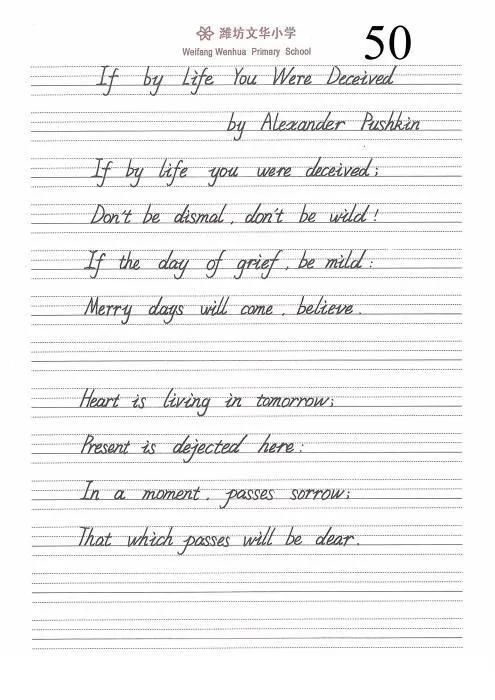 潍坊文华小学
50
Weifang Wenhua Primary School
If by Life You Were Deceived
by Alexander Pushkin
If by life you were deceived;
Don't be dismal, don't be wild!
If the day of grief, be mild:
Merry days will come, believe.
Heart is living in tomorrow;
Present is dejected here:
In a moment, passes sorrow;
That which passes will be dear.